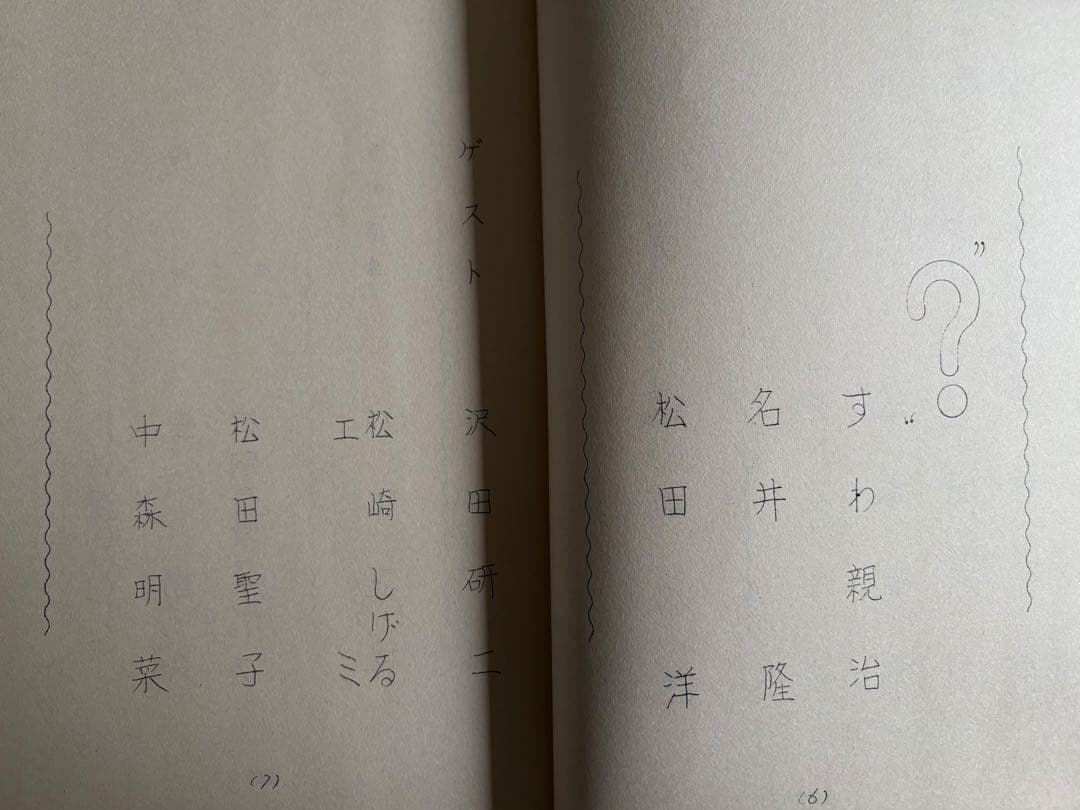 ”?“
すわ親治
名井隆
松田洋
(6)
ゲスト
沢田研二
松崎しげる
エミ
松田聖子
中森明菜
(7)